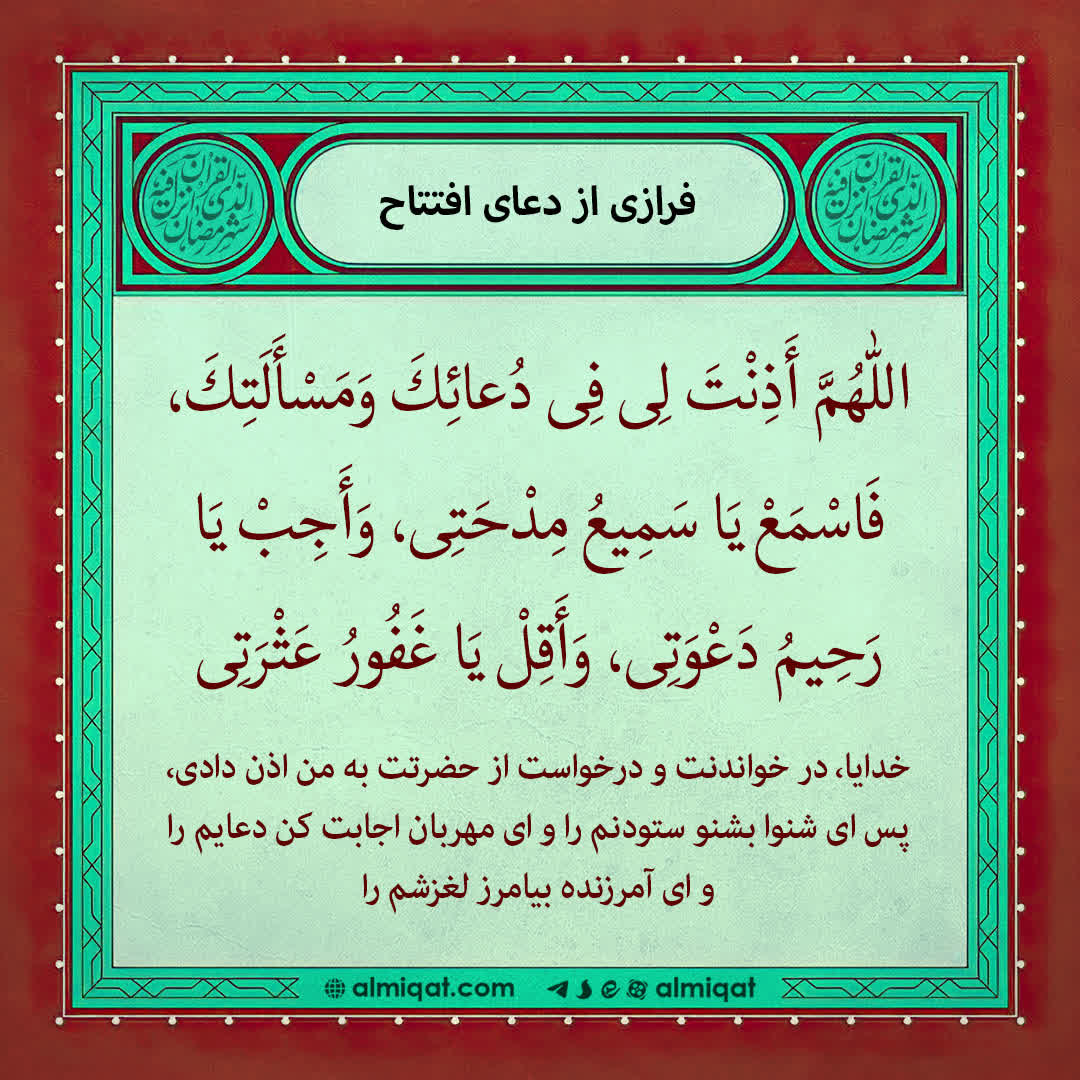 فرازی از دعای افتتاح
شهر رمضان الذی انزل فیه القرآن
شهر رمضان الذی انزل فیه القرآن
اللّٰهُمَّ أَذِنْتَ لِی فِی دُعائِكَ وَمَسْأَلَتِكَ،
فَاسْمَعْ یَا سَمِیعُ مِدْحَتِی، وَأَجِبْ یَا
رَحِیمُ دَعْوَتِی، وَأَقِلْ یَا غَفُورُ عَثْرَتِی
خدایا، در خواندنت و درخواست از حضرتت به من اذن دادی،
پس ای شنوا بشنو ستودنم را و ای مهربان اجابت کن دعایم را
و ای آمرزنده بیامرز لغزشم را
almiqat.com almiqat